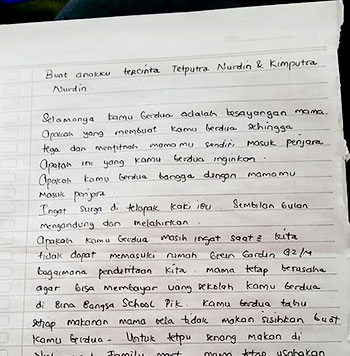 Buat anakku tercinta Tetputra Nurdin & Kimputra
Nurdin
Selamanya kamu berdua adalah kesayangan mama
Apakah yang membuat kamu berdua sehingga
tega dan menfitnah mamamu sendiri masuk penjara
Apakah ini yang kamu berdua inginkan.
Apakah kamu berdua bangga dengan mamamu
masuk penjara
Ingat surga di telapak kaki ibu. Sembilan bulan
mengandung dan melahirkan.
Apakah kamu berdua masih ingat saat2 kita
tidak dapat memasuki rumah Green Garden G2/4
bagaimana penderitaan kita. mama tetap berusaha
agar bisa membayar uang sekolah kamu berdua
di Bina Bangsa School Pik. kamu berdua tahu
setiap makanan mama bela tidak makan sisihkan buat
kamu berdua. Untuk tetpu senang makan di
Family mart mama tetap usahakan